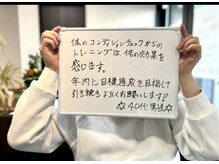 体のコンディションチェックからの
トレーニングは 倍の効果を
感じます。
年内に目標達成を目指して
引き続きよろしくお願いします!
☆40代男性☆